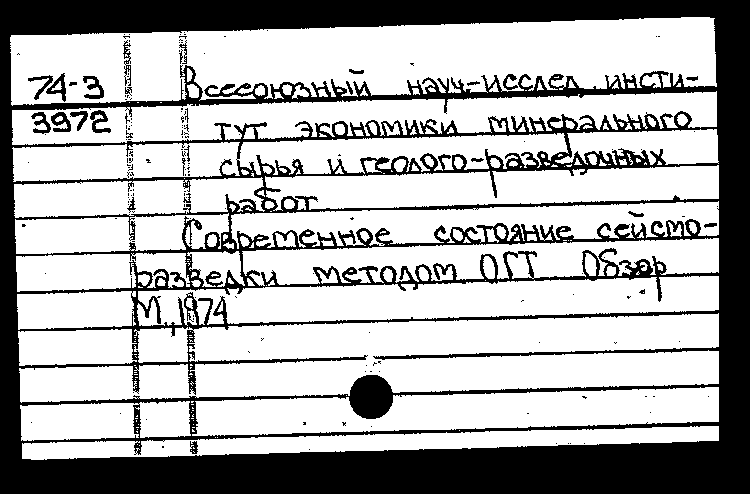 74-3 Всесоюзный науч-исслед. инсти-
3972 тут экономики минерального
сырья и геолого-разведочных
работ
Современное состояние сейсмо-
разведки методом ОГТ Обзор
М., 1974